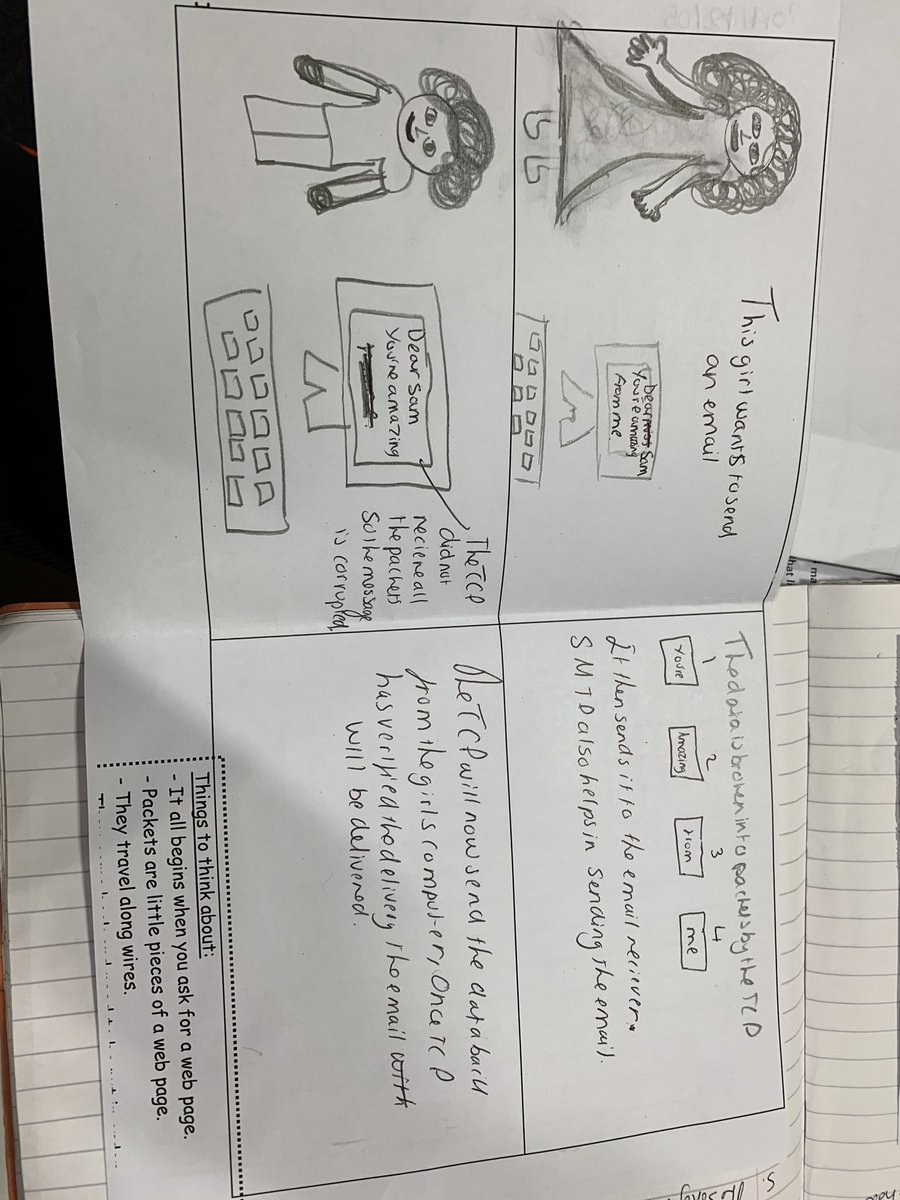 This girl wants to send
an email
Dear Sam
You're amazing
from me
The data is broken into packets by the TCP
1 2 3 4
You're
Amazing
From
me
It then sends it to the email reciever.
SMTP also helps in sending the email.
Dear Sam
You're amazing
The TCP
did not
recieve all
the packets
So the message
is corrupted
The TCP will now send the data back
from the girls computer, Once TCP
has verified the delivery the email with
will be delivered.
Things to think about:
- It all begins when you ask for a web page.
- Packets are little pieces of a web page.
- They travel along wires.